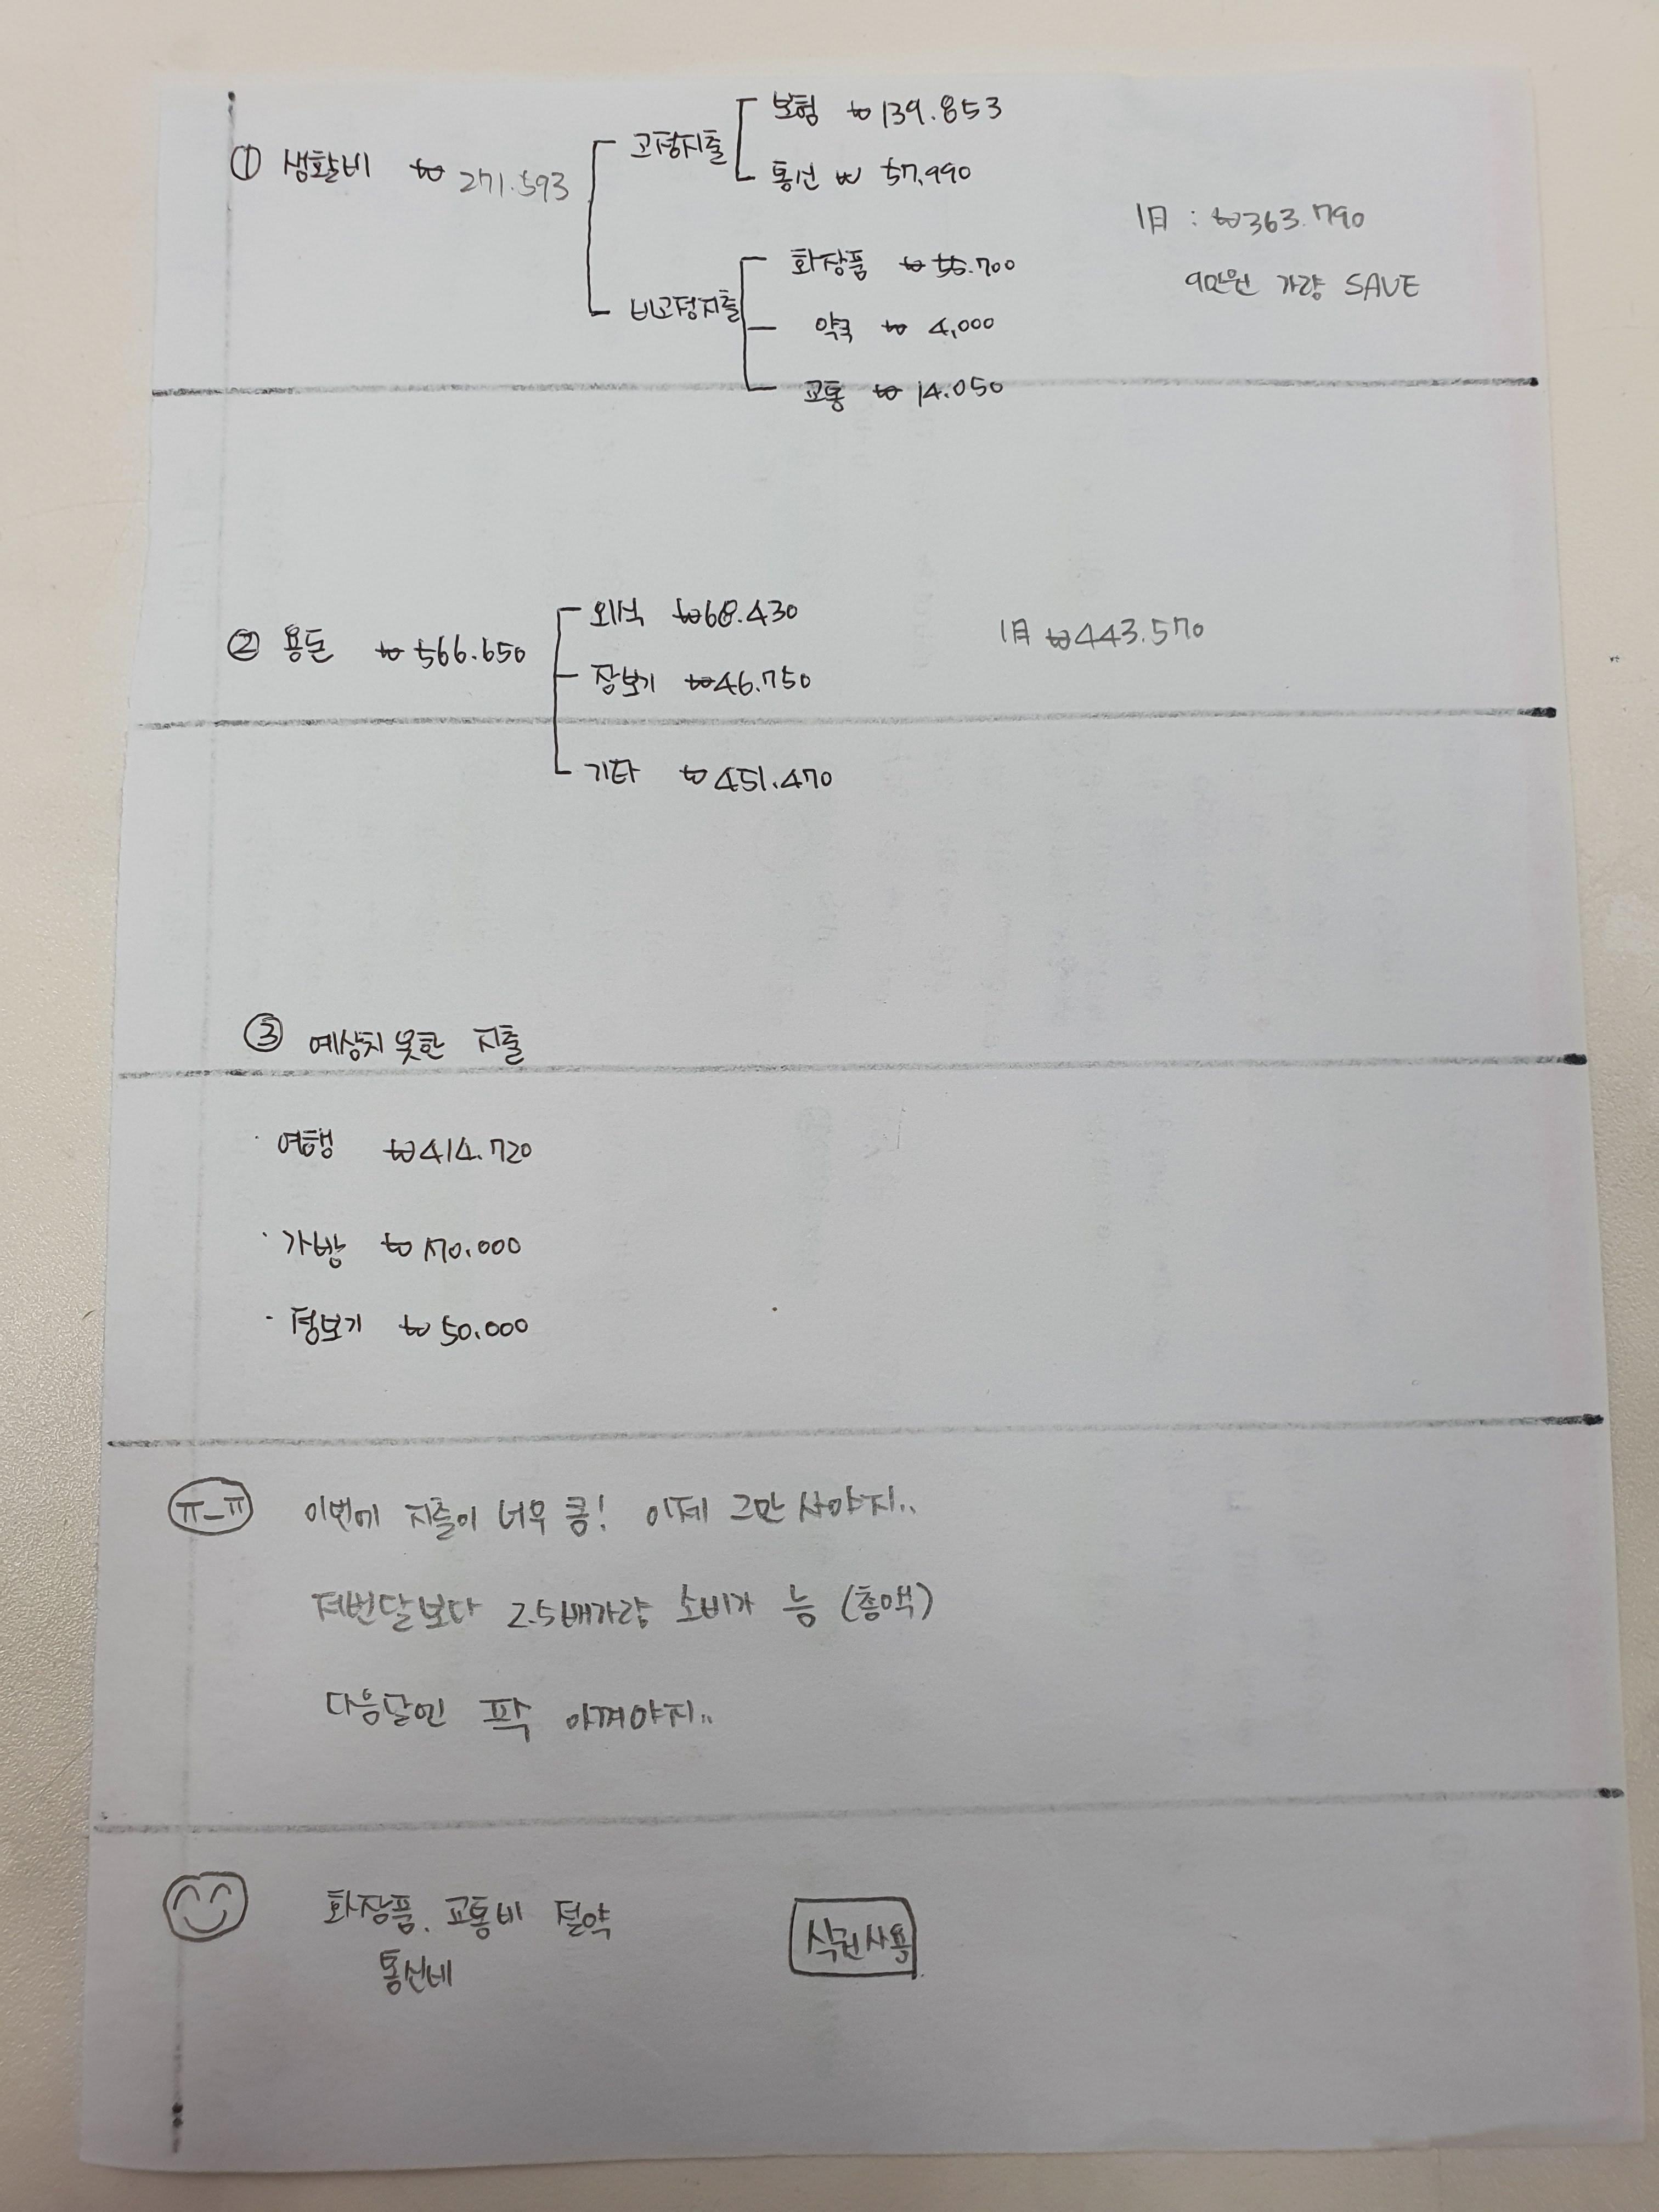 ① 생활비 ₩ 271.593
고정지출
보험 ₩ 139.853
통신 ₩ 57,990
비고정지출
화장품 ₩ 55.700
약국 ₩ 4,000
교통 ₩ 14.050
1月 : ₩363.790
9만원 가량 SAVE
② 용돈 ₩ 566.650
외식 ₩68.430
장보기 ₩46.750
기타 ₩451.470
1月 ₩443.570
③ 예상치 못한 지출
· 여행 ₩414.720
· 가방 ₩170.000
· 장보기 ₩50.000
ㅠ_ㅠ 이번에 지출이 너무 큼! 이제 그만 사야지..
저번달보다 2.5배가량 소비가 늠 (총액)
다음달엔 팍 아껴야지..
화장품. 교통비 절약
통신비
식권사용